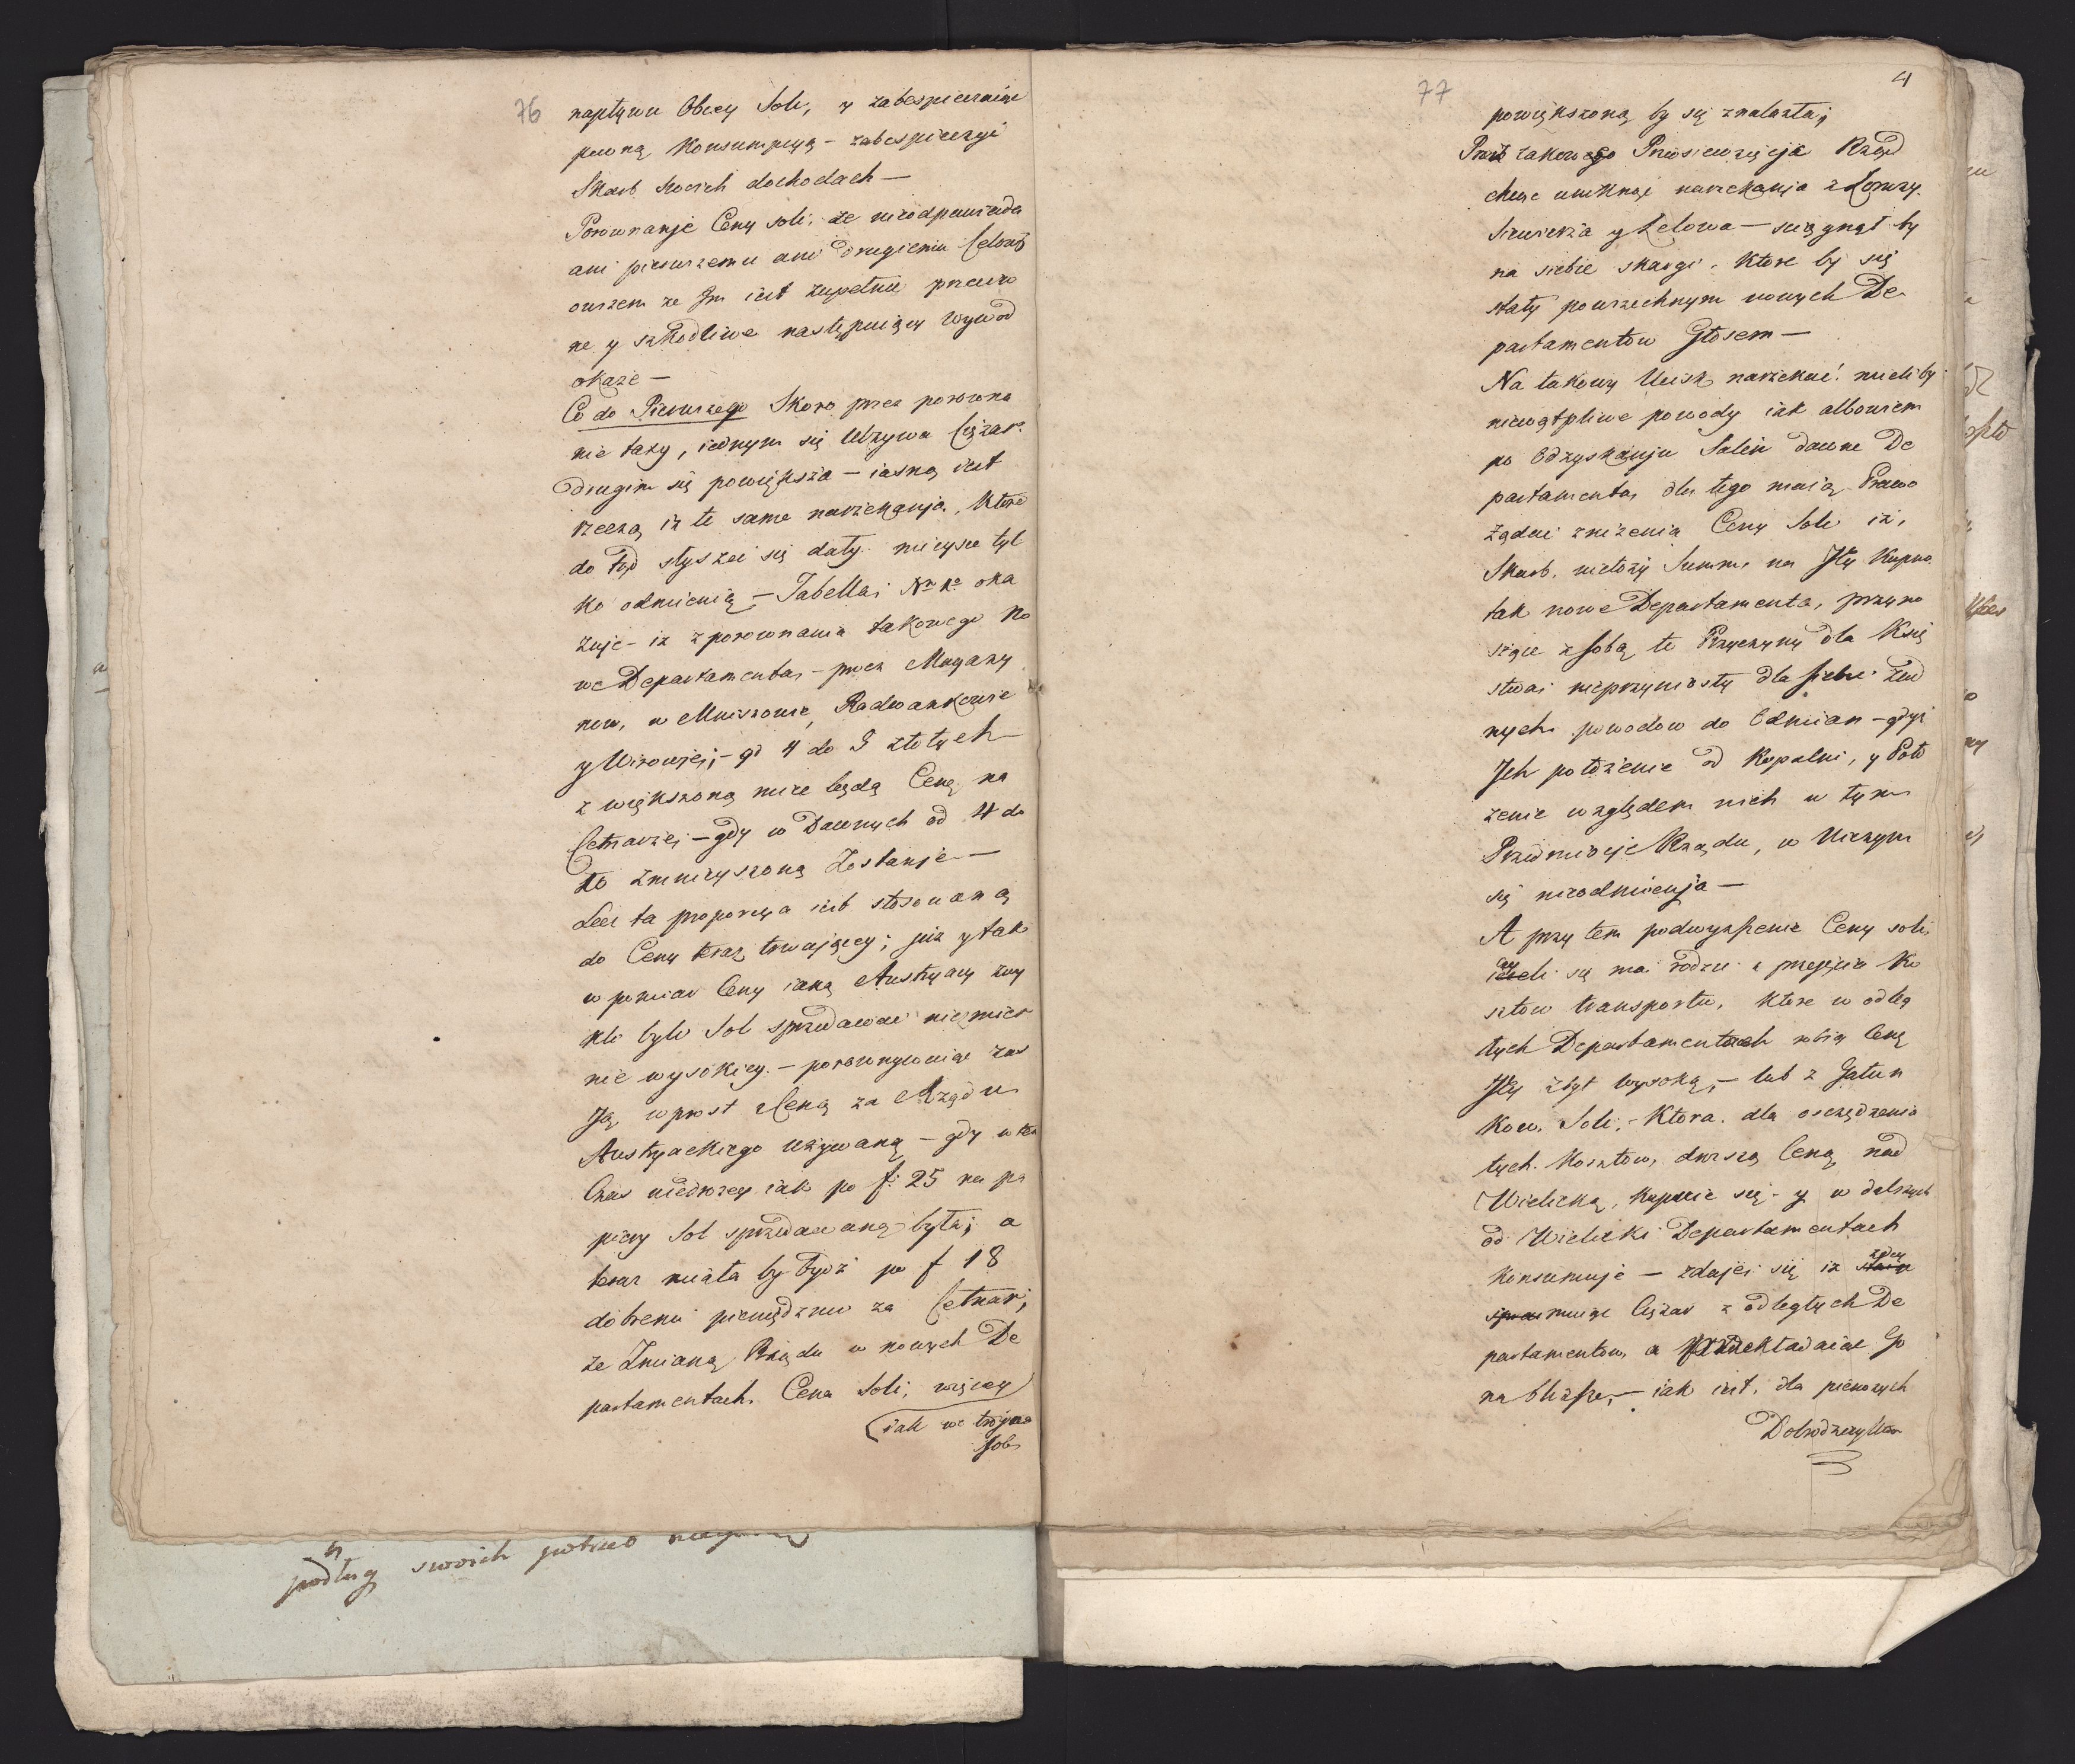 76
napływu Obcey Soli, y zabespieczaiąc
pewną Konsumpcyą - zabespieczyć
Skarb swoich dochodach —
Porownanje Ceny soli, że nieodpowiada
ani pierwszemu ani drugiemu Celowi
owszem że Jm iest zupełnie przeciw
ne y szkodliwe następuiący wywod
okaże —
Co do Pierwszego Skoro przez porowna
nie taxy, iednym się Ubzywa Ciężar
drugim się powiększa — iasną iest
rzeczą iż te same narzekanja, Które
do tąd słyszeć się dały mieysce tyl
ko odmienią — Tabella oka
zuje - iż z porownania takowego No
we Departamenta - przez Magazy
now, w Mniszowie, Radwankowie
y Wirowjej; - 4 do 9 złotych
zwiększoną mieć będą Cenę na
Cetnarze; - gdy w Dawnych od 4 do
10 zmnieyszoną Zostanje —
Lecz ta proporcya iest stosowaną
do Ceny teraz trwającey; już y tak
w pomiar Ceny iaką Austryacy zwy
kli byli Sol sprzedawać niezmier
nie wysokiey. - porownywaiąc zas
Ją wprost z Ceną za Rządu
Austryackiego używaną — gdy w ten
Czas niedrożey iak po f: 25 na pa
piery Sol sprzedawaną była; a
teraz miała by bydź po f 18
dobremi pieniędzmi za Cetnar;
Ze Zmianą Rządu w nowych De
partamentach Cena Soli, więcey
iak we troyna
sob
podług swoich potrzeb
77
4
powiększoną by się znalazła;
Przez takowego Przedsiewzięcja Rząd
chcąc uniknąć narzekanja z Łomży
Siewierza y Lelowa — sciągnął by
na siebie skargi, Które by się
stały powszechnym nowych De
partamentow Głosem —
Na takowy Ucisk narzekać mieliby
niewątpliwe powody iak albowiem
po Odzyskanju Salin dawne De
partamenta, dla tego maią Prawo
żądać zniżenia Ceny Soli iż,
Skarb, nie łoży Summ na Jey Kupno
tak nowe Departamenta, przyno
sząc z sobą te Przyczyny dla Księ
stwa, nieprzyniosły dla siebie żad
nych powodow do Odmian — gdyż
Ich położenie od Kopalni, y Poło
żenie względem nich w tym
Przedmiocie Rządu, w Niczym
się nieodmienja —
A przy tem podwyższenie Ceny soli,
czy
ieżeli się ma rodzi z przyjęcia Ko
sztow transportu, Które w odle
łych Departamentach robią Cenę
Jey zbyt wysoką, — lub z Gatun
kow Soli, - Ktora dla oszczędzenia
tych Kosztow, droższą Ceną nad
Wielicką, kupuie się - y w dalszych
od Wieliczki Departamentach
Konsumuje — zdaje się iż
zdey
muiąc Ciężar z odległych De
partamentow, a przekładaiąc Go
na bliższe, — iak iest, dla pierwszych
Dobrodzieystw